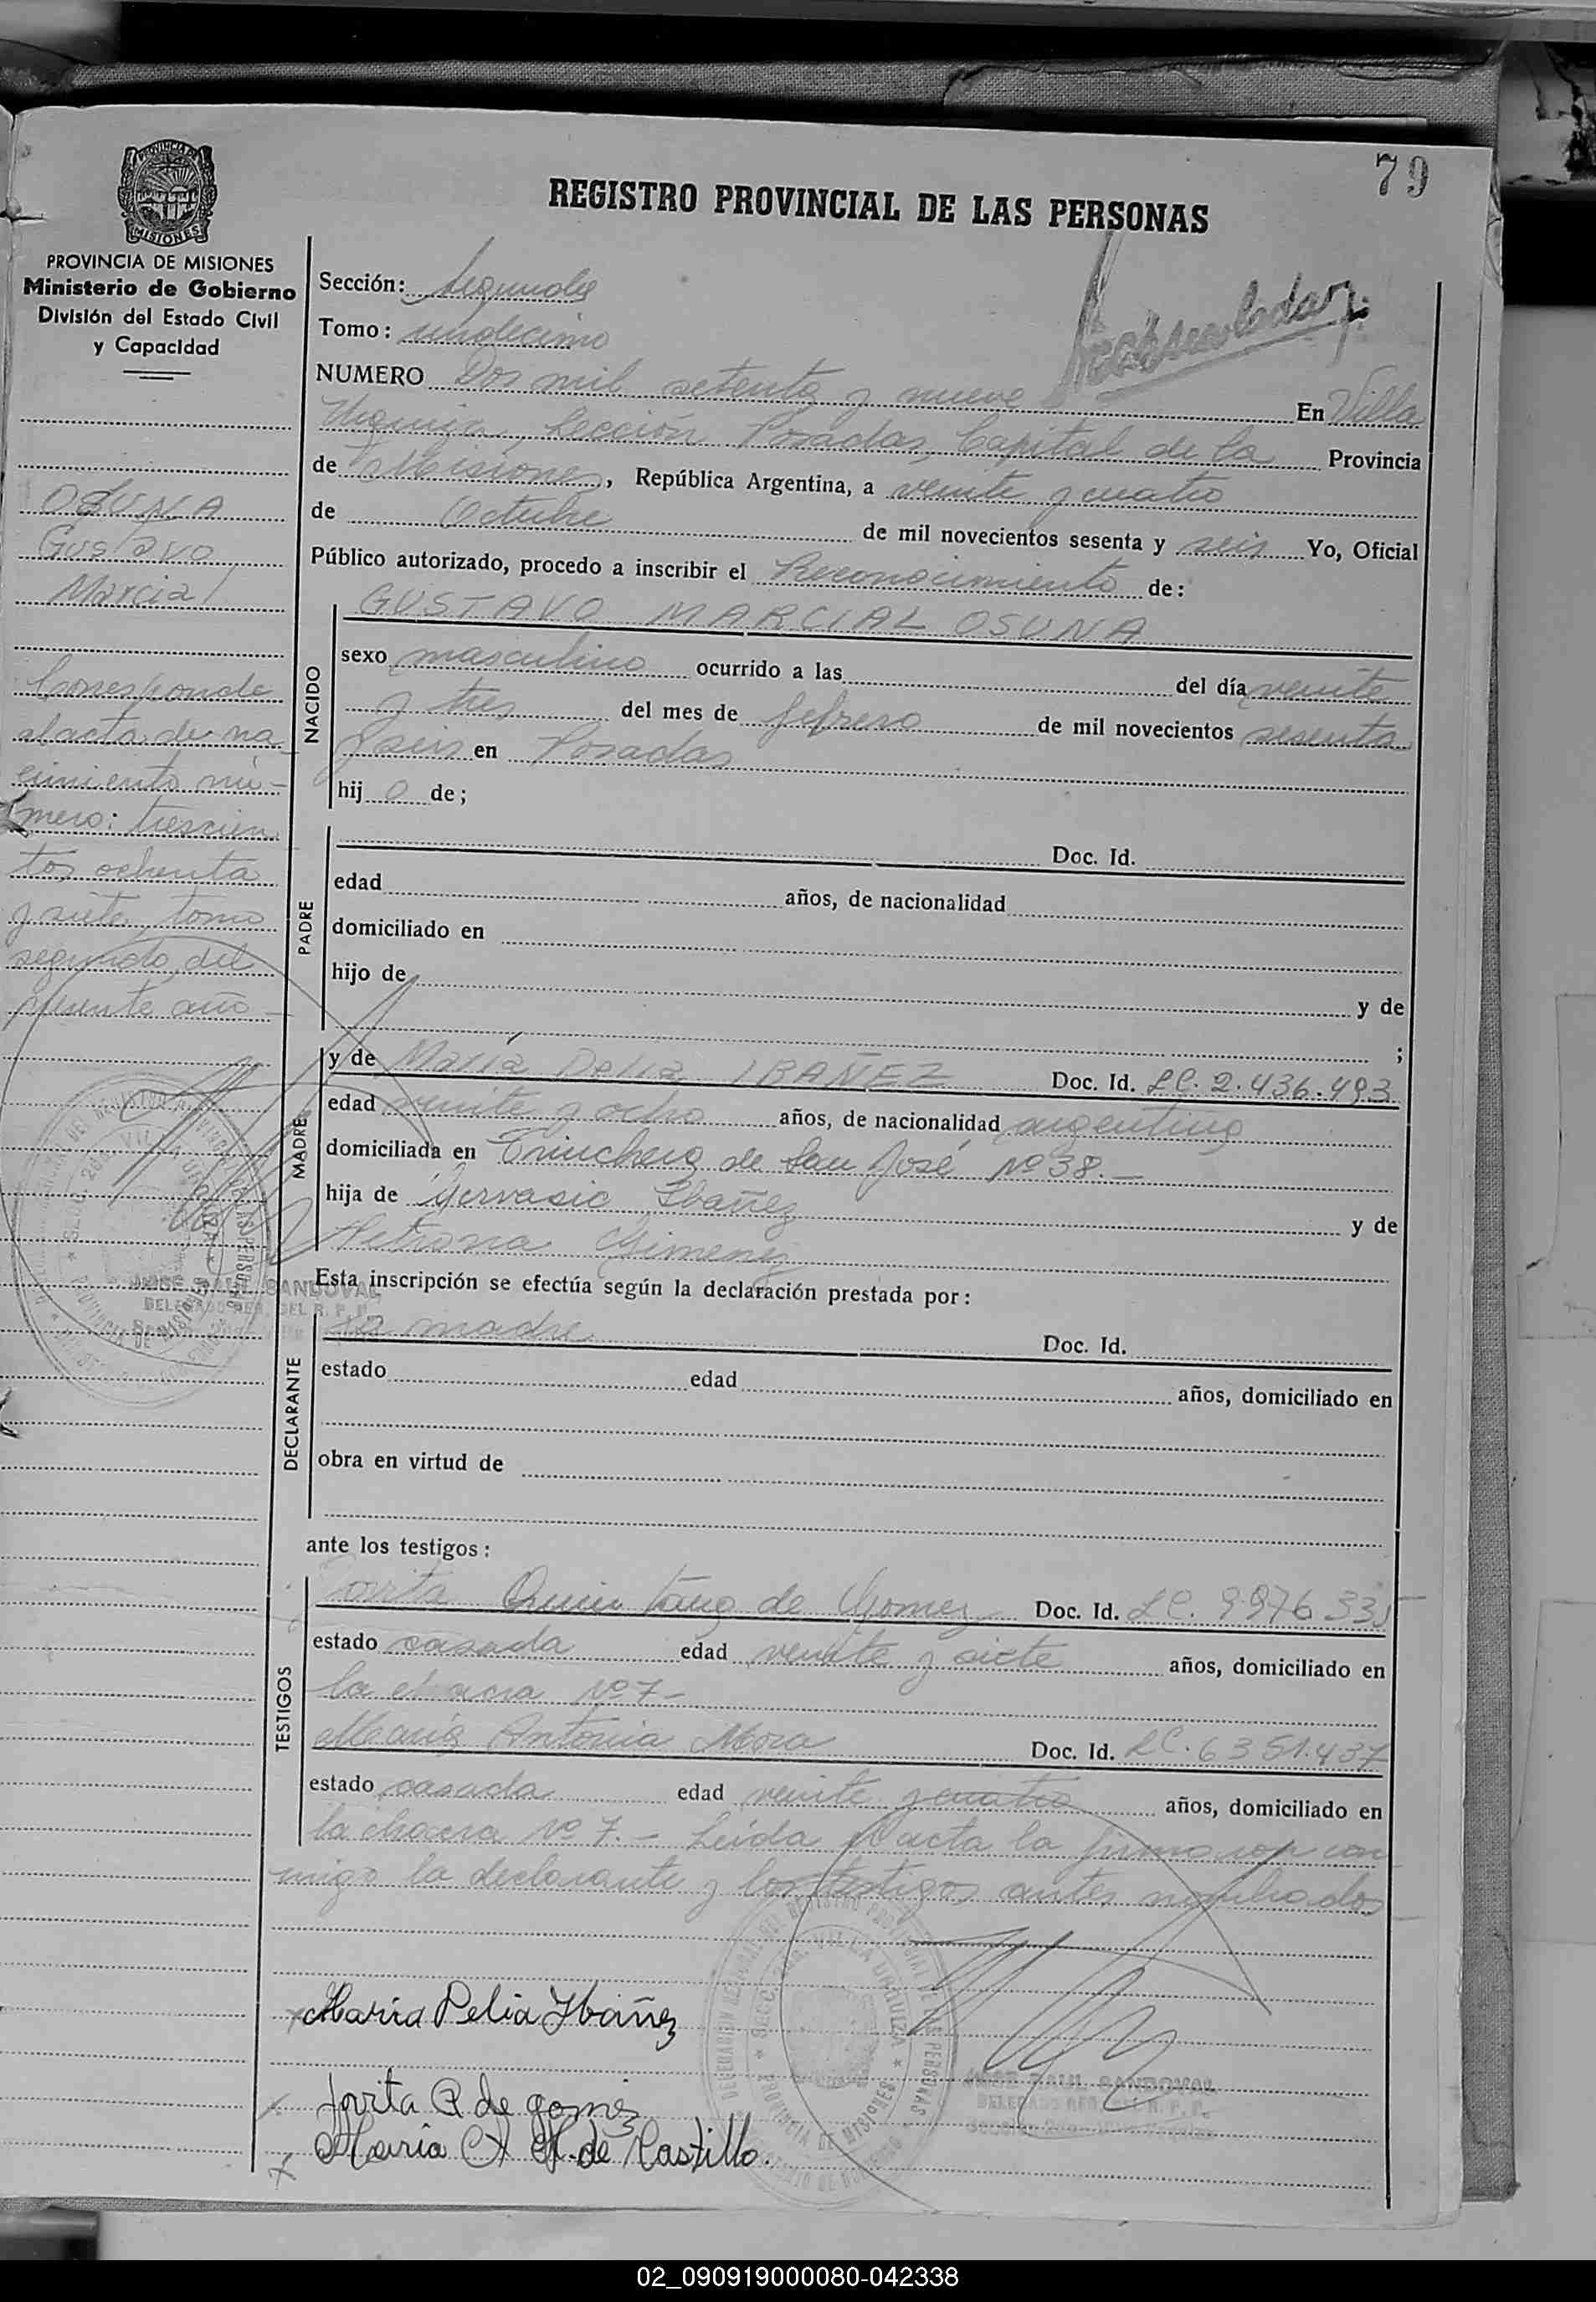 79
PROVINCIA DE
MISIONES
PROVINCIA DE MISIONES
Ministerio de Gobierno
División del Estado Civil
y Capacidad
OSUNA
Gustavo
Marcial
Corresponde
al acta de na-
cimiento nú-
mero: trescien
tos ochenta
y siete, tomo
segundo, del
presente año
REGISTRO PROVINCIAL DE LAS PERSONAS
Sección: Segunda
Tomo: undecimo
NUMERO Dos mil setenta y nueve En Villa
Urquiza, Sección Posadas, Capital de la Provincia
de Misiones, República Argentina, a veinte y cuatro
de Octubre de mil novecientos sesenta y seis Yo, Oficial
Público autorizado, procedo a inscribir el Reconocimiento de:
NACIDO
GUSTAVO MARCIAL OSUNA
sexo masculino ocurrido a las del día veinte
y tres del mes de febrero de mil novecientos sesenta
y seis en Posadas
hij o de;
PADRE
Doc. Id.
edad años, de nacionalidad
domiciliado en
hijo de y de
;
MADRE
y de María Delia IBAÑEZ Doc. Id. LC. 2.436.493
edad veinte y ocho años, de nacionalidad argentina
domiciliada en Trinchera de San José Nº 38.-
hija de Gervasio Ibañez y de
Petrona Gimenez
JOSE RAUL SANDOVAL
Esta inscripción se efectúa según la declaración prestada por:
DECLARANTE
la madre Doc. Id.
estado edad años, domiciliado en
obra en virtud de
ante los testigos:
TESTIGOS
Quintana de Gomez Doc. Id. LC. 9.976.335
estado casada edad veinte y siete años, domiciliado en
la chacra Nº 7-
María Antonia Mora Doc. Id. LC. 6351.437
estado casada edad veinte y cuatro años, domiciliado en
la chacra Nº 7.- Leída el acta la firmaron con
migo la declarante y los testigos antes nombrados
María Delia Ybañez
de gomez
María A M. de Castillo.
VILLA URQUIZA
PROVINCIA DE MISIONES
JOSE RAUL SANDOVAL
02_090919000080-042338